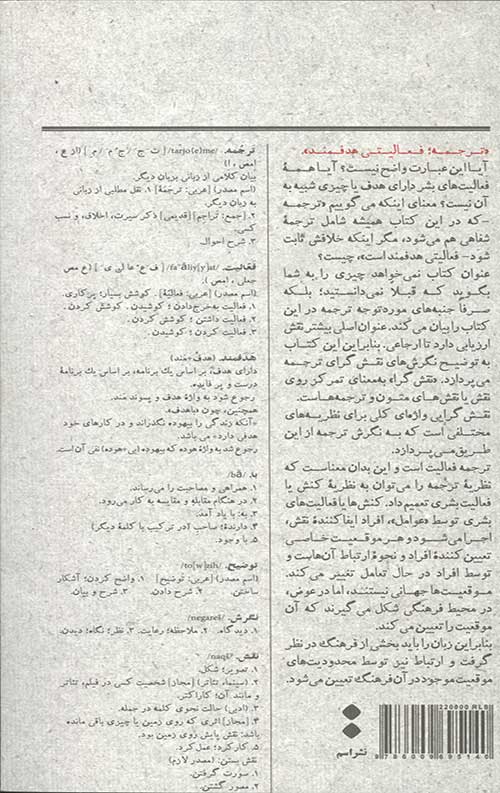 «ترجمه؛ فعالیتی هدفمند».
آیا این عبارت واضح نیست؟ آیا همهٔ
فعالیت‌های بشر دارای هدف یا چیزی شبیه به
آن نیست؟ معنای اینکه می گوییم «ترجمه
–که در این کتاب همیشه شامل ترجمهٔ
شفاهی هم می‌شود، مگر اینکه خلافش ثابت
شود– فعالیتی هدفمند است»، چیست؟
عنوان کتاب نمی‌خواهد چیزی را به شما
بگوید که قبلاً نمی‌دانستید؛ بلکه
صرفاً جنبه‌های موردتوجه ترجمه در این
کتاب را بیان می کند. عنوان اصلی بیشتر نقش
ارزیابی دارد تا ارجاعی. بنابراین این کتاب
به توضیح نگرش‌های نقش گرای ترجمه
می پردازد. «نقش گرا» به‌معنای تمرکز روی
نقش یا نقش‌های متون و ترجمه‌هاست.
نقش گرایی واژه‌ای کلی برای نظریه‌های
مختلفی است که به نگرش ترجمه از این
طریق می پردازد.
ترجمه فعالیت است و این بدان معناست که
نظریهٔ ترجمه را می‌توان به نظریهٔ کنش یا
فعالیت بشری تعمیم داد. کنش‌ها یا فعالیت‌های
بشری توسط «عوامل»، افراد ایفاکنندهٔ نقش،
اجرا می‌شود و هر موقعیت خاصی
تعیین کنندهٔ افراد و نحوهٔ ارتباط آن‌هاست و
توسط افراد در حال تعامل تغییر می کند.
موقعیت‌ها جهانی نیستند، اما در عوض،
در محیط فرهنگی شکل می‌گیرند که آن
موقعیت را تعیین می کند.
بنابراین زبان را باید بخشی از فرهنگ در نظر
گرفت و ارتباط نیز توسط محدودیت‌های
موقعیت موجود در آن فرهنگ تعیین می‌شود.
نشر اسم
220000 RLS
9 786009 695146
ترجُمه. /tarjo(e)me/
بیان کلامی از زبانی بزبان دیگر.
(اسم مصدر) [عربی: ترجمَة] ۱. نقل مطلبی از زبانی
به زبان دیگر.
۲. [جمع: تراجِم] [قدیمی] ذکر سیرت، اخلاق، و نسب
کسی.
۳. شرح احوال.
فعالیت.
جعلی ، اِمص ).
(اسم مصدر) [عربی: فعالیّة] . کوشش بسیار؛ پرکاری.
۱. فعالیت به‌خرج‌دادن ؛ کوشیدن . کوشش کردن .
۲. فعالیت داشتن ؛ کوشش کردن .
۳. فعالیت کردن ؛ کوشیدن .
هدفمند. (هدف‌مَند)
دارای هدف، بر اساس یک برنامه، بر اساس یک برنامهٔ
درست و پر فایده.
رجوع شود به واژهٔ هدف و پسوند مند.
همچنین، چون «باهدف».
«آنکه زندگی را بیهوده نگذراند و در کارهای خود
هدفی دارد» می باشد.
رجوع شد به واژهٔ هوده که بیهوده (بی+هوده) نفی آن است.
با. /bā/
۱. همراهی و مصاحبت را می‌رساند.
۲. در هنگام مقابله و مقایسه به کار می‌رود.
۳. به: با یاد آمد.
۴. دارندهٔ؛ صاحبِ (در ترکیب با کلمهٔ دیگر)
۵. با وجود.
توضیح. /to[w]zih/
(اسم مصدر) [عربی: توضیح] ۱. واضح کردن؛ آشکار
ساختن. ۲. شرح دادن. ۳. شرح و بیان.
نگرش. /negareš/
۱. دیدگاه. ۲. ملاحظه؛ رعایت. ۳. نظر؛ نگاه؛ دیدن.
نقش. /naqš/
۱. تصویر؛ شکل.
۲. (سینما، تئاتر) [مجاز] شخصیت کسی در فیلم، تئاتر
و مانند آن؛ کاراکتر.
۳. (ادبی) حالت نحوی کلمه در جمله.
۴. [مجاز] اثری که روی زمین یا چیزی باقی مانده
باشد: نقش پایش روی زمین بود.
۵. کارکرد؛ عمل‌کرد.
نقش بستن: (مصدر لازم)
۱. صورت گرفتن.
۲. مصور گشتن.